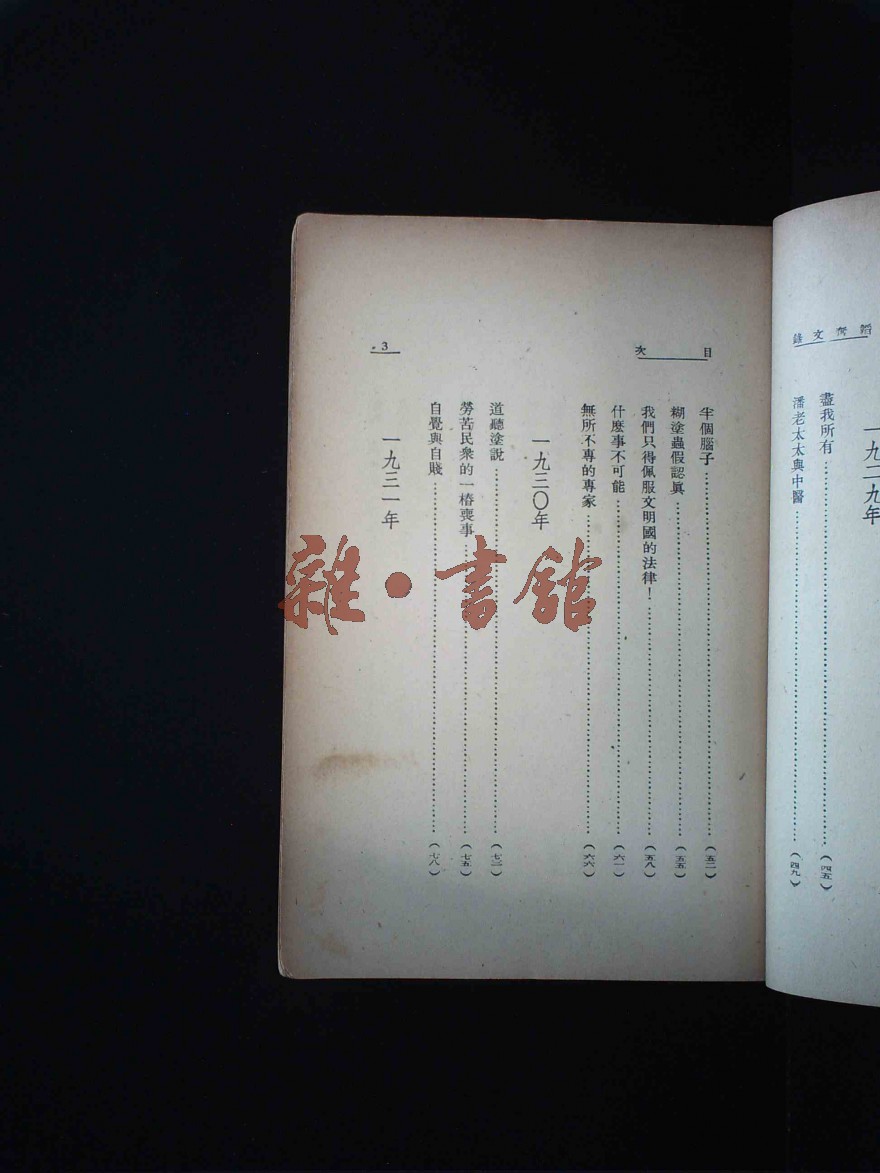 韜奮文錄
一九二九年
盡我所有……（四五）
潘老太太與中醫……（四九）
目次
半個腦子……（五二）
糊塗蟲假認眞……（五五）
我們只得佩服文明國的法律！……（五八）
什麼事不可能……（六一）
無所不專的專家……（六六）
一九三〇年
道聽塗說……（七二）
勞苦民衆的一樁喪事……（七五）
自覺與自賤……（七八）
一九三一年
3
雜·書館